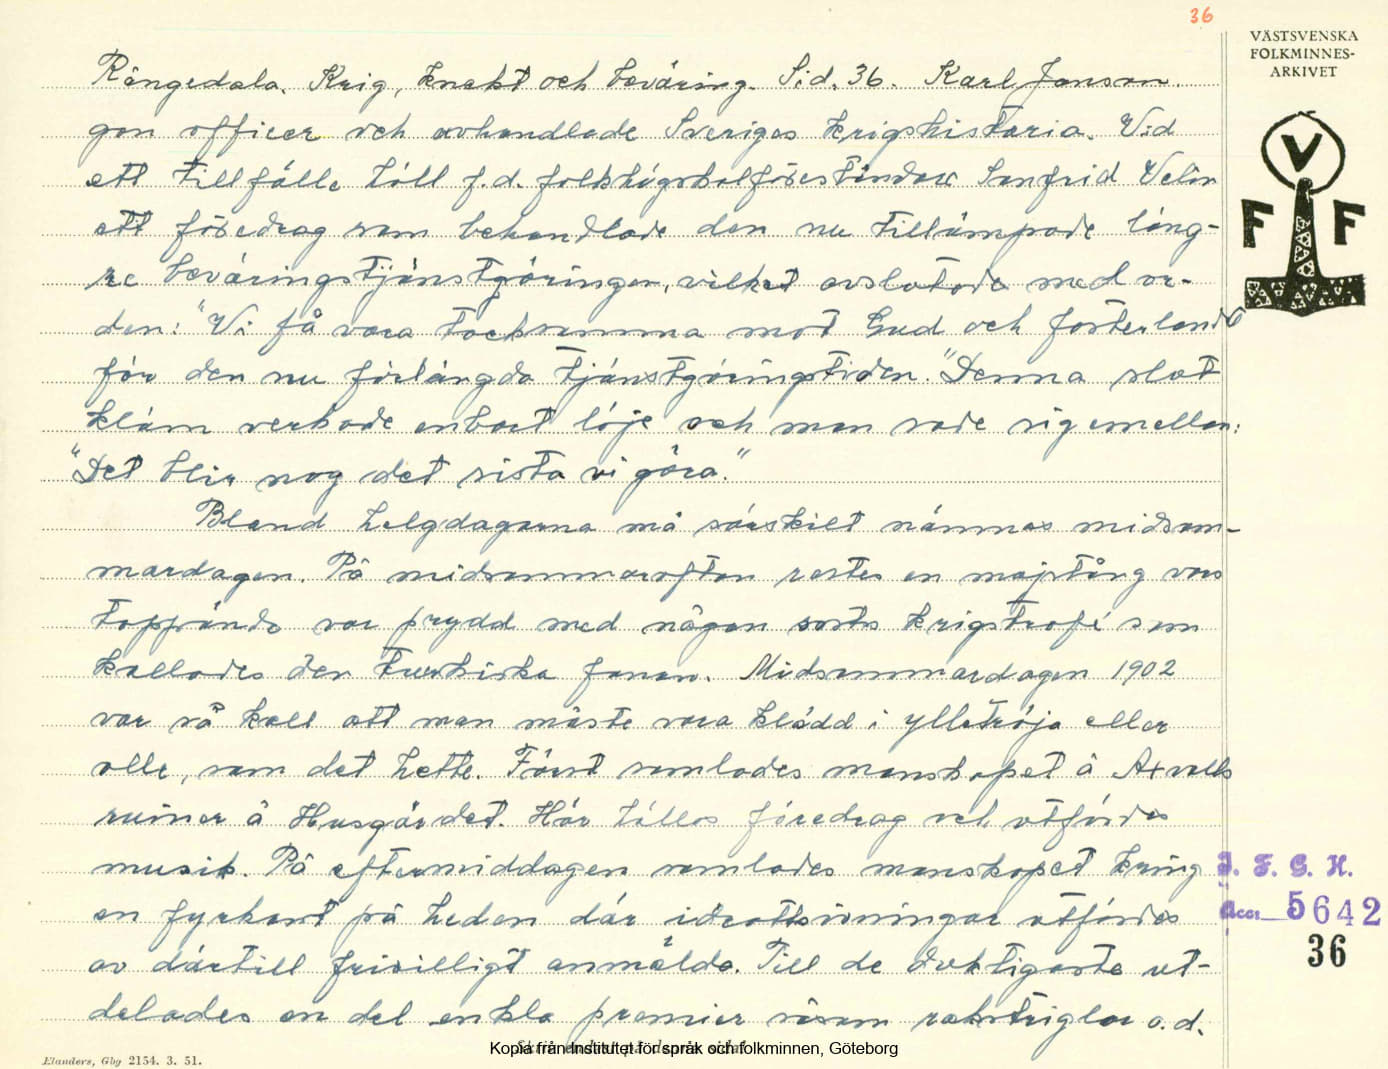 36
VÄSTSVENSKA
FOLKMINNES-
ARKIVET
V
F F
Rångedala. Krig, knekt och beväring. Sid. 36. Karl Janson.
gon officer och avhandlade Sveriges krigshistoria. Vid
ett tillfälle höll f.d. folkhögskolföreståndare Sanfrid Welin
ett föredrag som behandlade den nu tillämpade läng-
re beväringstjänstgöringen, vilket avslutade med or-
den: "Vi få vara tacksamma mot Gud och fosterlandet
för den nu förlängda tjänstgöringstiden." Denna slut
kläm verkade enbart löje och man sade sig emellan:
"Det blir nog det sista vi göra."
Bland helgdagarna må särskilt nämnas midsom-
mardagen. På midsommarafton restes en majstång vars
toppände var prydd med någon sorts krigstrofé som
kallades den turkiska fanan. Midsommardagen 1902
var så kall att man måste vara klädd i ylletröja eller
olle, som det hette. Först samlades manskapet å Axvalls
ruiner å Husgärdet. Här hölls föredrag och utfördes
musik. På eftermiddagen samlades manskapet kring
en fyrkant på heden där idrottsövningar utfördes
av därtill frivilligt anmälda. Till de duktigaste ut-
delades en del enkla premier såsom rakstriglar o.d.
I. F. G. H.
Acc. 5642
36
Elanders, Gbg 2154. 3. 51.
Kopia från Institutet för språk och folkminnen, Göteborg